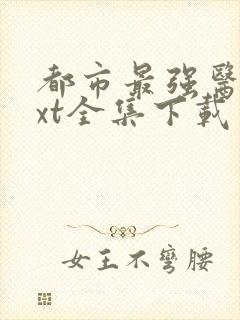 都市最强醫
xt全集下載
女王不彎腰